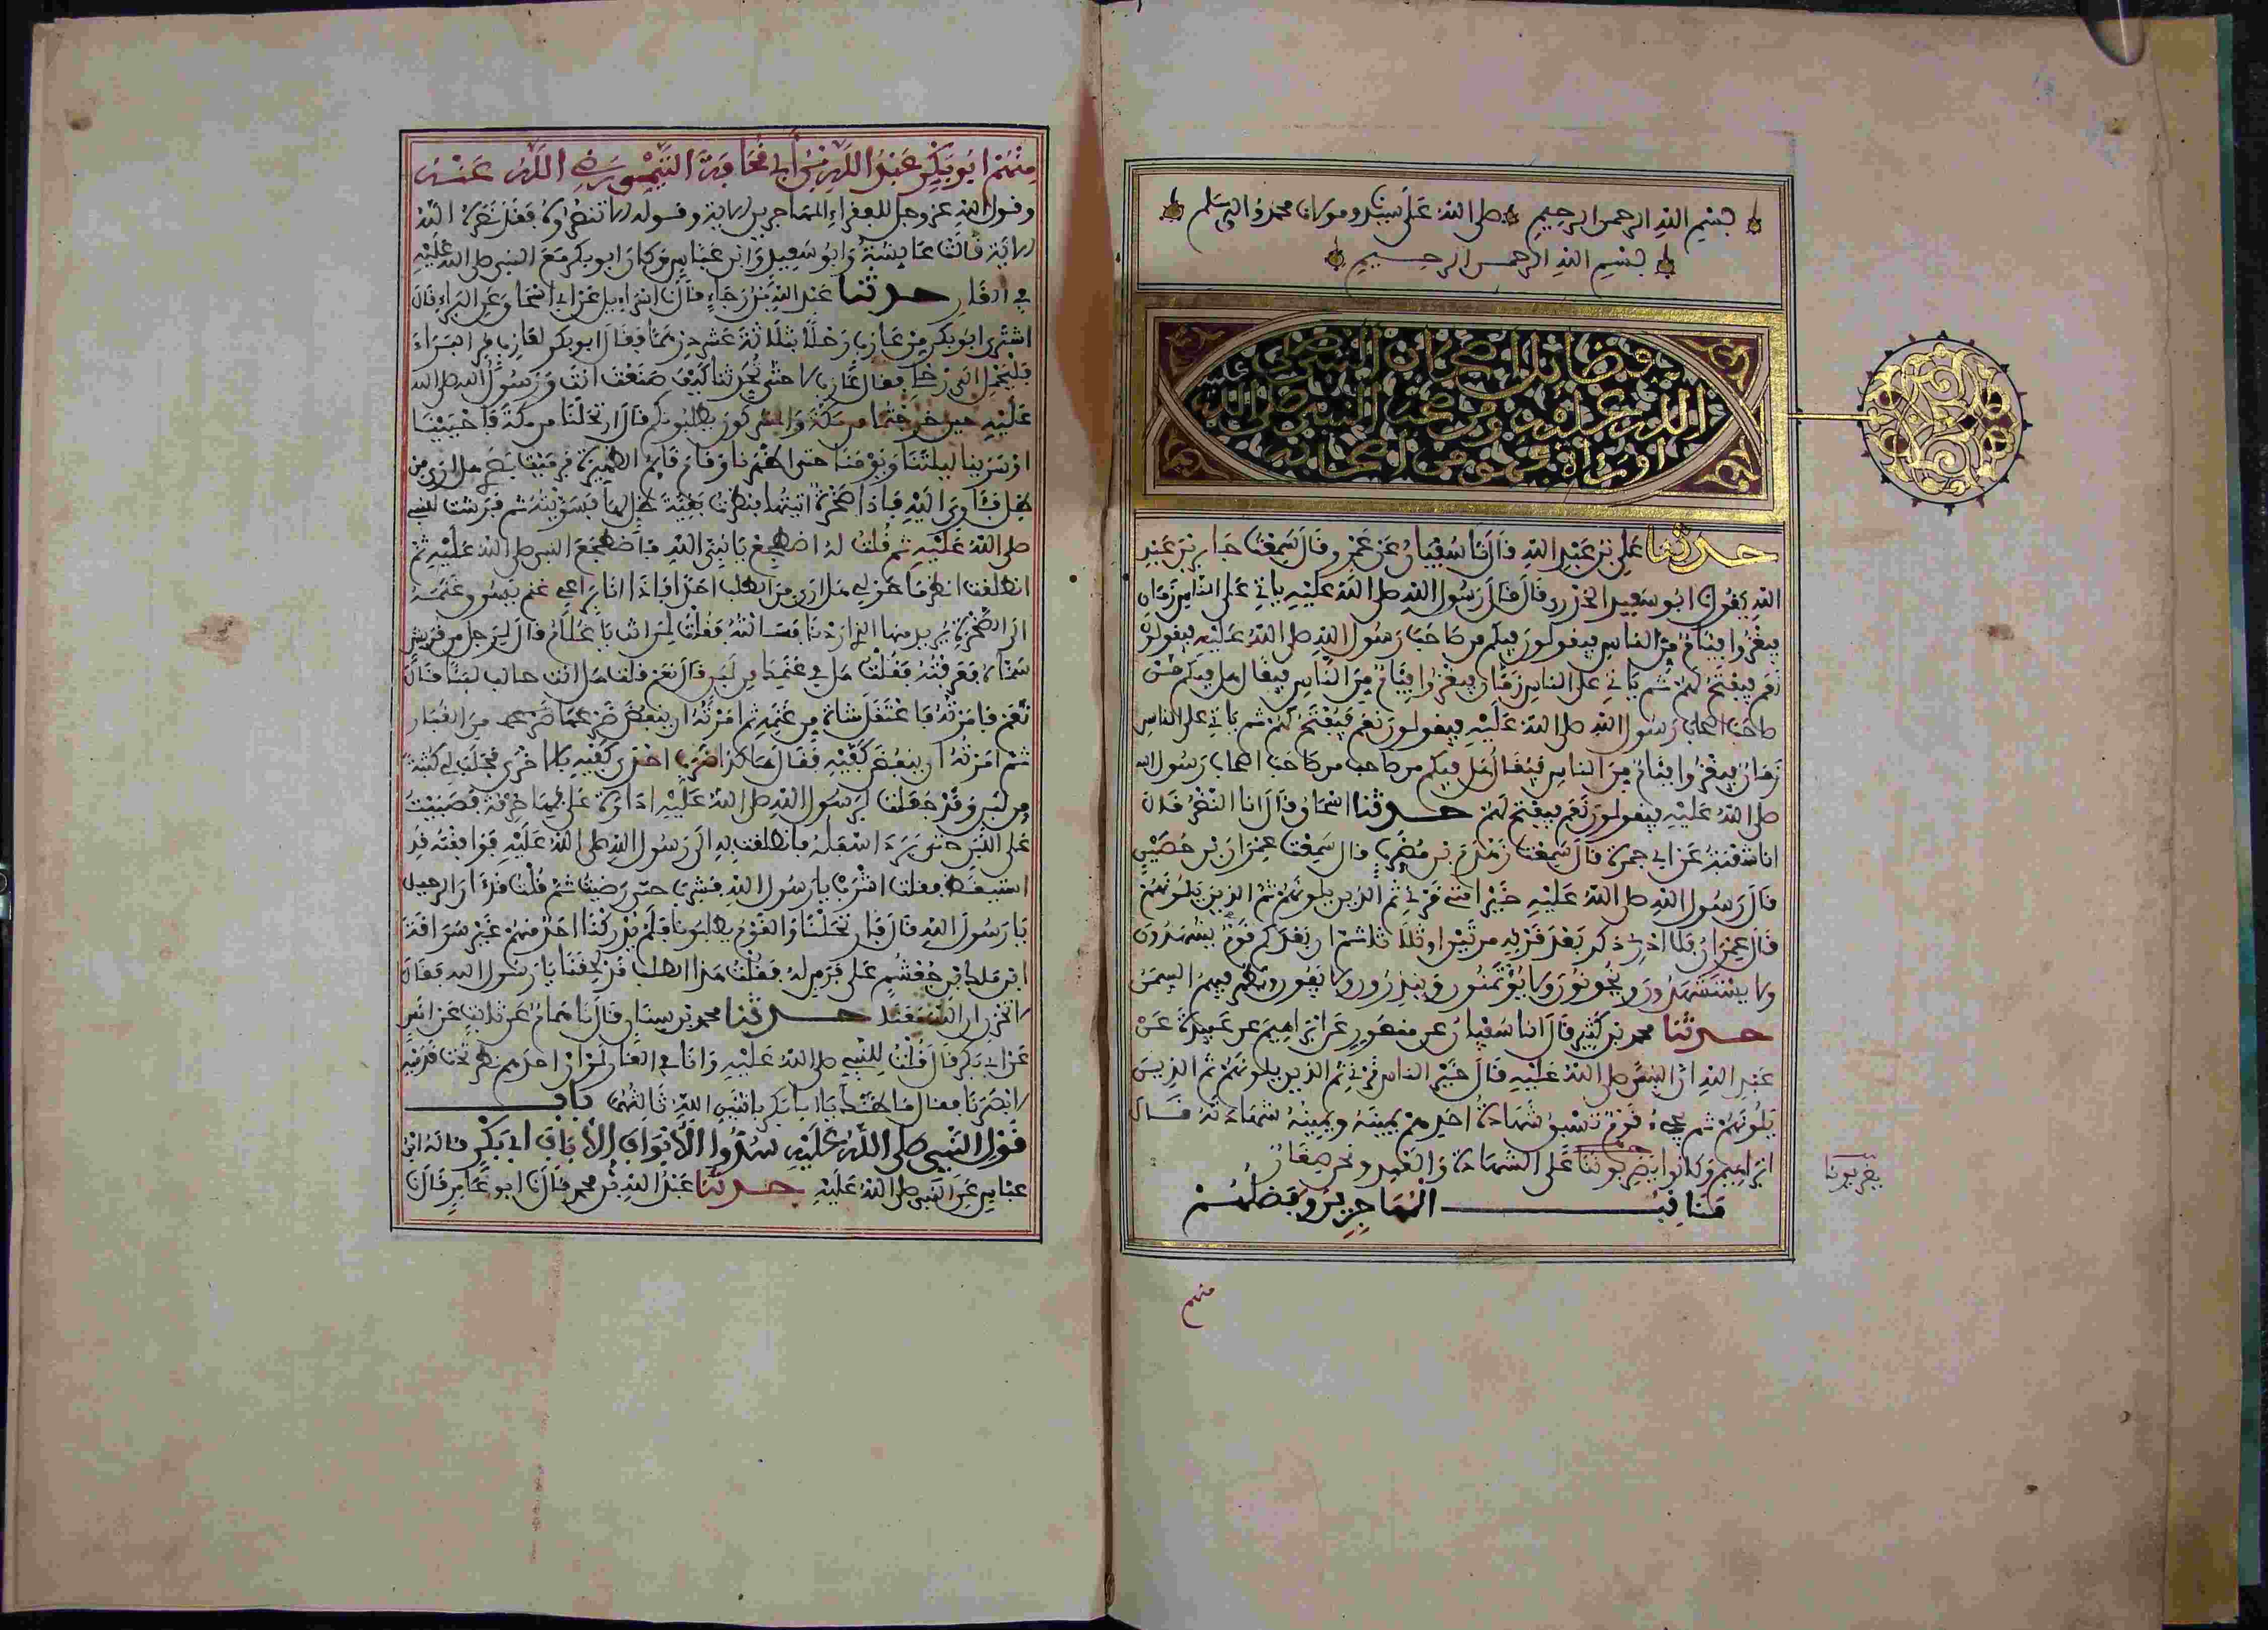 بسم الله الرحمن الرحيم صلى الله على سيدنا ومولانا محمد وءاله وسلم
بسم الله الرحمن الرحيم
فضائل اصحاب النبي صلى
الله عليه ومن صحب النبي صلى الله عليه
او رءاه فهو من اصحابه
حدثنا علي بن عبد الله قال نا سفيان عن عمرو قال سمعت جابر بن عبد
الله يقول نا ابو سعيد الخدري قال قال رسول الله صلى الله عليه ياتي على الناس زمان
فيغزوا فئام من الناس فيقولون فيكم من صاحب رسول الله صلى الله عليه فيقولون
نعم فيفتح لهم ثم ياتي على الناس زمان فيغزوا فئام من الناس فيقال هل فيكم من
صاحب اصحاب رسول الله صلى الله عليه فيقولون نعم فيفتح لهم ثم ياتي على الناس
زمان فيغزوا فئام من الناس فيقال هل فيكم من صاحب من صاحب اصحاب رسول الله
صلى الله عليه فيقولون نعم فيفتح لهم حدثنا اسحاق قال انا النضر قال
انا شعبة عن ابي جمرة قال سمعت زهدم بن مضرب قال سمعت عمران بن حصين
قال رسول الله صلى الله عليه خير امتي قرني ثم الذين يلونهم ثم الذين يلونهم
قال عمران فلا ادري ذكر بعد قرنه مرتين او ثلاثا ثم ان بعدكم قوم يشهدون
ولا يستشهدون ويخونون ولا يؤتمنون وينذرون ولا يفون ويظهر فيهم السمن
حدثنا محمد بن كثير قال انا سفيان عن منصور عن ابراهيم عن عبيدة عن
عبد الله ان النبي صلى الله عليه قال خير الناس قرني ثم الذين يلونهم ثم الذين
يلونهم ثم يجيء قوم تسبق شهادة احدهم يمينه ويمينه شهادته قال
ابراهيم وكانوا يضربوننا على الشهادة والعهد ونحن صغار
يضربونا
مناقب المهاجرين وفضلهم
منهم
منهم ابو بكر عبد الله بن ابي قحافة التيمي رضي الله عنه
وقول الله عز وجل للفقراء المهاجرين الاية وقوله الا تنصروه فقد نصره الله
الاية قالت عايشة وابو سعيد وابن عباس وكان ابو بكر مع النبي صلى الله عليه
في الغار حدثنا عبد الله بن رجاء قال نا اسراءيل عن ابي اسحاق عن البراء قال
اشترى ابو بكر من عازب رحلا بثلاثة عشر درهما فقال ابو بكر لعازب مر البراء
فليحمل الي رحلي فقال عازب لا حتى تحدثنا كيف صنعت انت ورسول الله صلى الله
عليه حين خرجتما من مكة والمشركون يطلبونكم قال ارتحلنا من مكة فاحيينا
او سرينا ليلتنا ويومنا حتى اظهرنا وقام قائم الظهيرة فرميت ببصري هل ارى من
ظل فـاوي اليه فاذا صخرة اتيتها فنظرت بقية ظل لها فسويته ثم فرشت للنبي
صلى الله عليه ثم قلت له اضطجع يا نبي الله فاضطجع النبي صلى الله عليه ثم
انطلقت انظر ما حولي هل ارى من الطلب احدا فاذا انا براعي غنم يسوق غنمه
الى الصخرة يريد منها الذي اردنا فسالته فقلت لمن انت يا غلام قال لرجل من قريش
سماه فعرفته فقلت هل في غنمك من لبن قال نعم قلت هل انت حالب لبنا قال
نعم فامرته فاعتقل شاة من غنمه ثم امرته ان ينفض ضرعها من الغبار
ثم امرته ان ينفض كفيه فقال هاكذا ضرب احدى كفيه بالاخرى فحلب لي كثبة
من لبن وقد جعلت لرسول الله صلى الله عليه اداوة على فمها خرقة فصببت
على اللبن حتى برد اسفله فانطلقت به الى رسول الله صلى الله عليه فوافقته قد
استيقظ فقلت اشرب يا رسول الله فشرب حتى رضيت ثم قلت قد ءان الرحيل
يا رسول الله قال فارتحلنا والقوم يطلبونا فلم يدركنا احد منهم غير سراقة
ابن مالك بن جعشم على فرس له فقلت هذا الطلب قد لحقنا يا رسول الله فقال
لا تحزن ان الله معنا حدثنا محمد بن سنان قال نا همام عن ثابت عن انس
عن ابي بكر قال قلت للنبي صلى الله عليه وانا في الغار لو ان احدهم نظر تحت قدميه
لابصرنا فقال ما ظنك يا ابا بكر باثنين الله ثالثهما باب
قول النبي صلى الله عليه سدوا الابواب الا باب ابي بكر قاله ابن
عباس عن النبي صلى الله عليه حدثنا عبد الله بن محمد قال نا ابو عامر قال نا